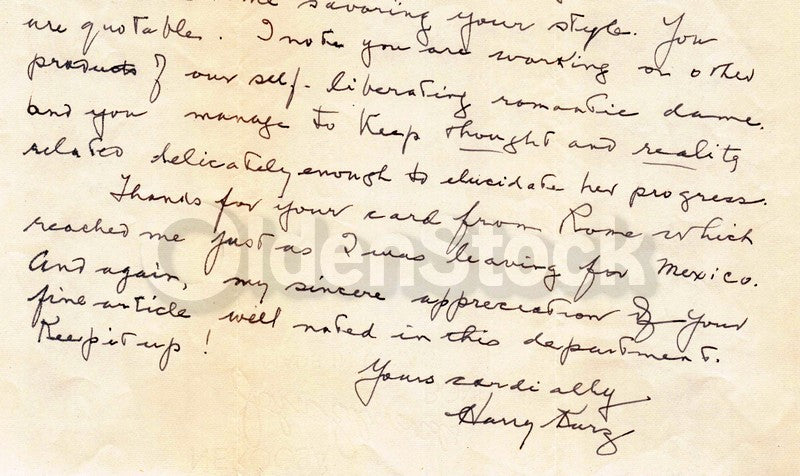 me savoring your style. You
are quotable. I note you are working on other
products of our self-liberating romantic dame.
and you manage to keep thought and reality
related delicately enough to elucidate her progress.
Thanks for your card from Rome which
reached me just as I was leaving for Mexico.
And again, my sincere appreciation of your
fine article well noted in this department.
Keep it up!
Yours cordially
Harry Kurz
OldenStock